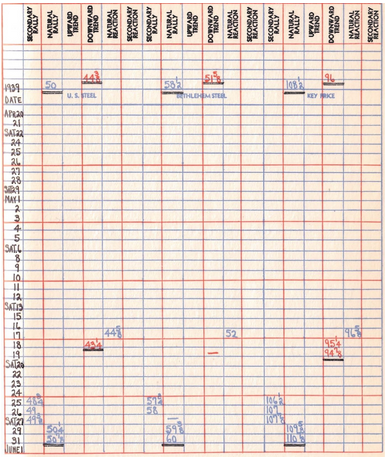 SECONDARY RALLY NATURAL RALLY UPWARD TREND DOWNWARD TREND NATURAL REACTION SECONDARY REACTION SECONDARY RALLY NATURAL RALLY UPWARD TREND DOWNWARD TREND NATURAL REACTION SECONDARY REACTION SECONDARY RALLY NATURAL RALLY UPWARD TREND DOWNWARD TREND NATURAL REACTION SECONDARY REACTION
1939 50 58½ 51⅝ 108½ 96
DATE U. S. STEEL BETHLEHEM STEEL KEY PRICE
APR.20
21
SAT.22
24
25
26
27
28
SAT.29
MAY 1
2
3
4
5
SAT.6
8
9
10
11
12
SAT.13
15
16
17 44⅝ 52 96⅝
18 43¼ 95¼
19 — 94⅞
SAT.20
22
23
24
25 48¾ 57¾ 106½
26 49 58 107
SAT.27 49⅜ — 107⅞
29 50¼ 59⅜
31 50⅞ 60 110⅞
JUNE 1